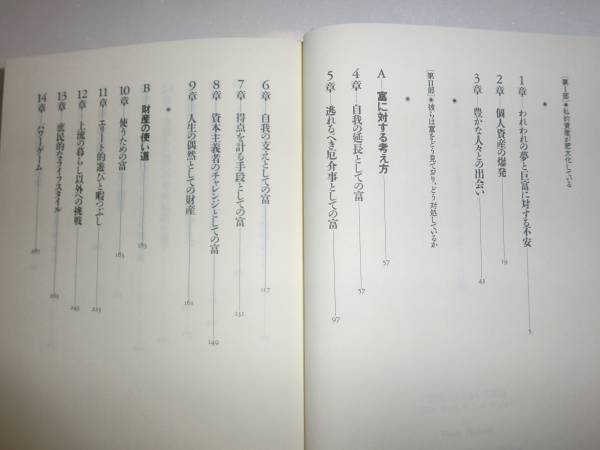 [第Ⅰ部]●私的資産が肥大化している
*
1章 われわれの夢と巨富に対する不安 5
2章 個人資産の爆発 19
3章 豊かな人々との出会い 41
*
[第Ⅱ部]●彼らは富をどう見ており、どう対処しているか
*
A 富に対する考え方 57
4章 自我の延長としての富 57
5章 逃れるべき厄介事としての富 97
6章 自我の支えとしての富 117
7章 得点を計る手段としての富 131
8章 資本主義者のチャレンジとしての富 149
9章 人生の偶然としての財産 161
*
B 財産の使い道 183
10章 使うための富 183
11章 エリート的遊びと暇つぶし 223
12章 上流の暮らし以外への挑戦 245
13章 庶民的なライフスタイル 269
14章 パワーゲーム 287